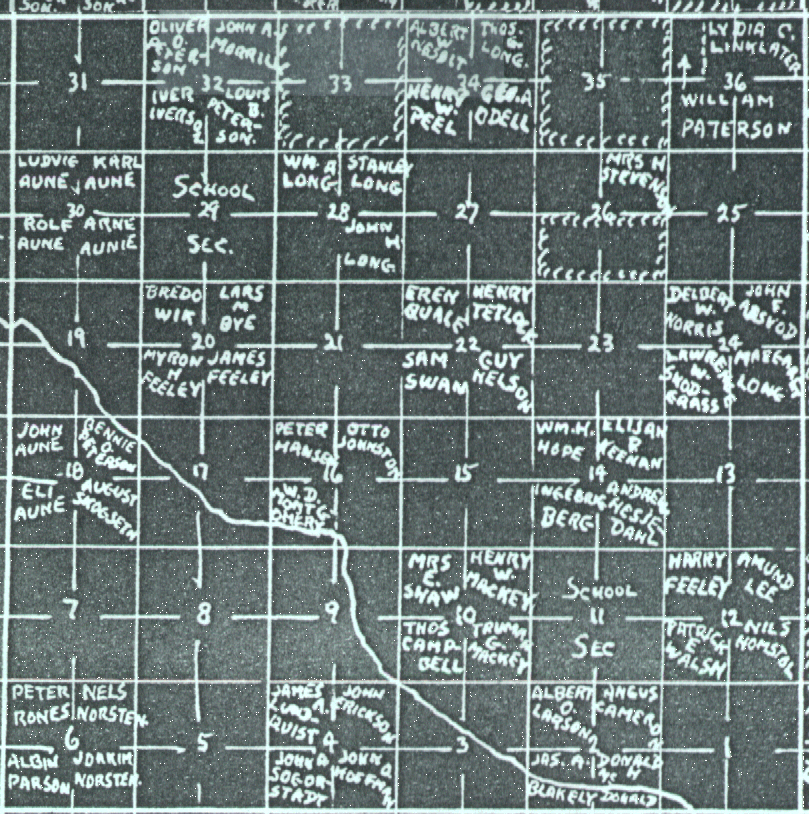 SON. SON.
31
OLIVER
O.
PETER-
SON
JOHN A.
MORRILL
32
IVER
IVERSON
LOUIS
B.
PETER-
SON.
33
ALBERT
W
NESBIT
THOS.
G
LONG.
34
HENRY
W.
PEEL
GEO. A
ODELL
35
LYDIA C.
LINKLATER
36
WILLIAM
PATERSON
LUDVIG
AUNE
KARL
AUNE
30
ROLF
AUNE
ARNE
AUNIE
SCHOOL
29
SEC.
WM. A
LONG
STANLEY
LONG
28
JOHN
H
LONG
27
MRS H
STEVENSON
26
25
19
BREDO
WIK
LARS
M
BYE
20
MYRON
H
FEELEY
JAMES
FEELEY
21
EREN
QUALE
HENRY
TETLOCK
22
SAM
SWAN
GUY
NELSON
23
DELBERT
W.
NORRIS
JOHN
F.
24
LAWRENCE
W.
MARGARET
LONG
JOHN
AUNE
BENNIE
O.
PETERSON
18
ELI
AUNE
AUGUST
SKOGSETH
17
PETER
HANSEN
OTTO
JOHNSTON
16
W. D.
MONTG-
OMERY
15
WM. H.
HOPE
ELIJAH
KEENAN
14
BERG
ANDREW
HESJE-
DAHL
13
7
8
9
MRS
E.
SHAW
HENRY
W.
MACKEY
10
THOS
CAMP-
BELL
TRUMAN
G.
MACKEY
SCHOOL
11
SEC
HARRY
FEELEY
AMUND
LEE
12
PATRICK
E
WALSH
NILS
HOMSTOL
PETER
RONES
NELS
NORSTEN.
6
ALBIN
PARSON
JOAKIM
NORSTEN.
5
JAMES
A.
LUND-
QUIST
JOHN
ERICKSON
4
JOHN A
SOGOR-
STADT
JOHN O.
HOFFMAN
3
ALBERT
O.
LARSON
ANGUS
CAMERON
2
JAS. A.
BLAKELY
DONALD
H
MC
DONALD
1